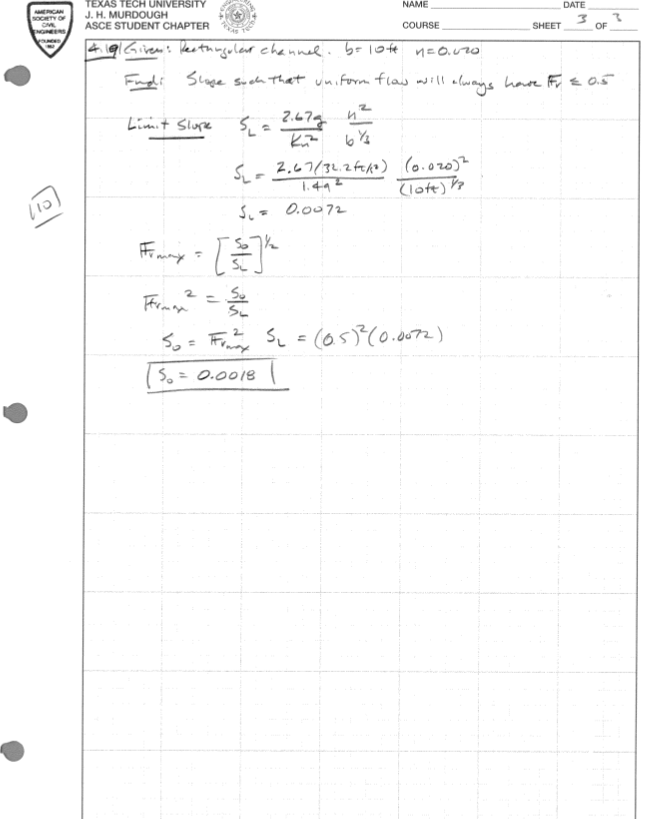 AMERICAN SOCIETY OF CIVIL ENGINEERS FOUNDED 1852
TEXAS TECH UNIVERSITY
J. H. MURDOUGH
ASCE STUDENT CHAPTER
NAME DATE
COURSE SHEET 3 OF 3
4.19 Given: Rectangular channel. b=10ft n=0.020
Find: Slope such that uniform flow will always have Fr ≤ 0.5
Limit Slope S_L = 2.67g/Kn² n²/b^⅓
S_L = 2.67(32.2ft/s²)/1.49² (0.020)²/(10ft)^⅓
S_L = 0.0072
(10)
Fr_max = [S₀/S_L]^½
Fr_max² = S₀/S_L
S₀ = Fr_max² S_L = (0.5)²(0.0072)
S₀ = 0.0018